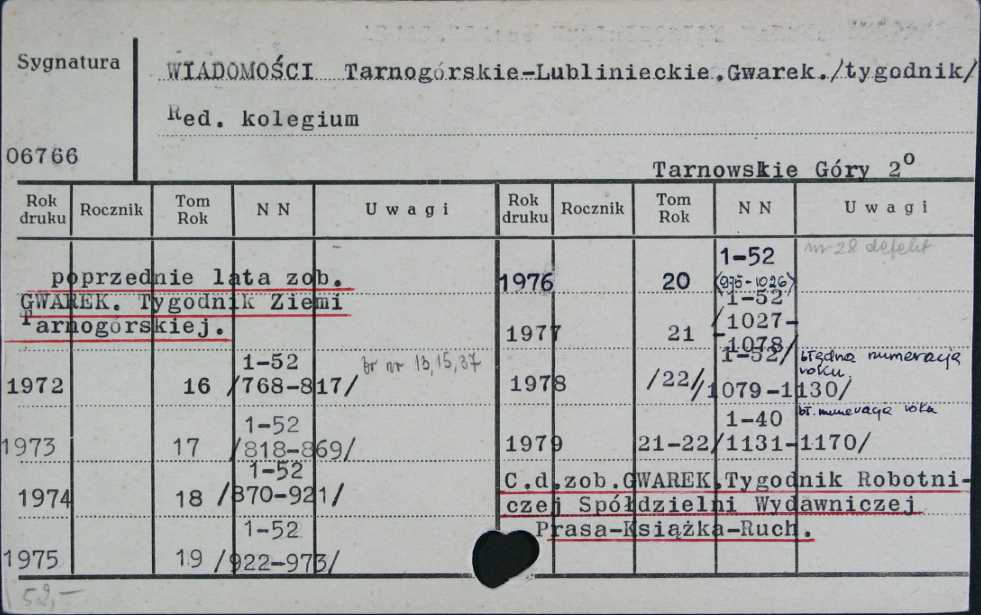 Sygnatura
WIADOMOŚCI Tarnogórskie-Lublinieckie.Gwarek./tygodnik/
Red. kolegium
06766
Tarnowskie Góry 2o
Rok druku Rocznik Tom Rok NN Uwagi Rok druku Rocznik Tom Rok NN Uwagi
poprzednie lata zob.
GWAREK. Tygodnik Ziemi
Tarnogórskiej.
1972 16 1-52 /768-817/ br nr 13,15,37
1973 17 1-52 /818-869/
1974 18 1-52 /870-921/
1975 19 1-52 /922-973/
1976 20 1-52 (975-1026) nr 28 defekt
1977 21 1-52 /1027-1078/
1978 /22/ 1-52/ /1079-1130/ błędna numeracja roku
1979 21-22 1-40 /1131-1170/ bł. numeracja roku
C.d.zob.GWAREK.Tygodnik Robotni-
czej Spółdzielni Wydawniczej
Prasa-Książka-Ruch.
52,-